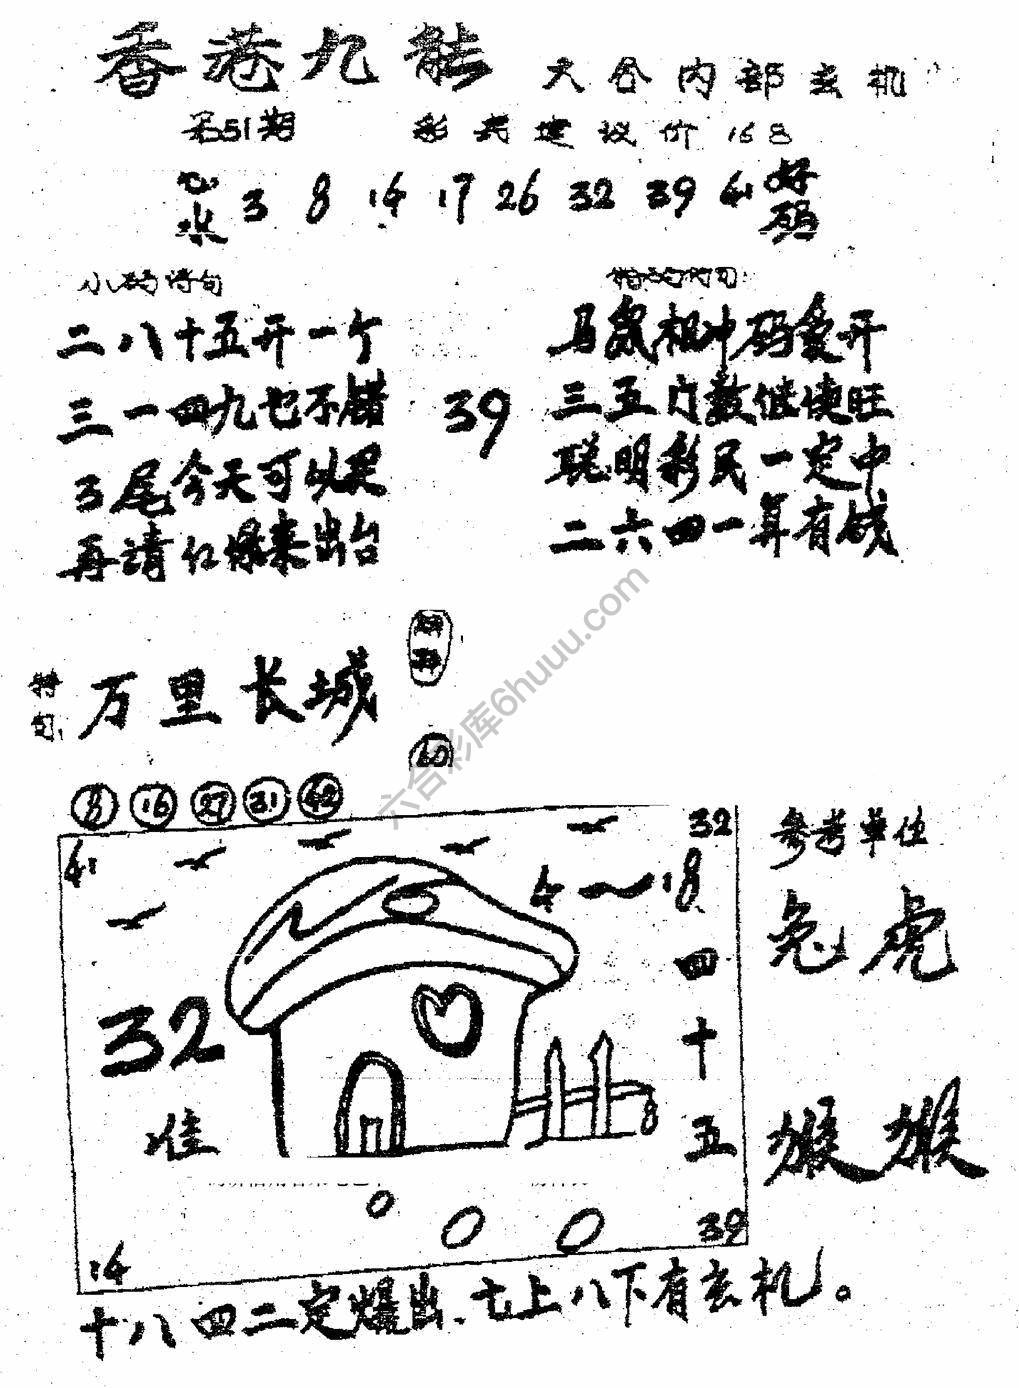 香港九能 大合内部玄机
51期 彩民建议价168
心水 3 8 14 17 26 32 39 41 好码
小码诗句
二八十五开一个
三一四九七不错
3尾今天可以灵
再请红爆来出台
39
马鼠相冲码爱开
三五门数继使旺
聪明彩民一定中
二六四一算有成
特句:万里长城
8 16 27 31 42
41
32
4~18
四十五
32准
8
14
39
参考单位
兔虎
猴猴
十八四二定爆出、七上八下有玄机。
六合彩库6huuu.com